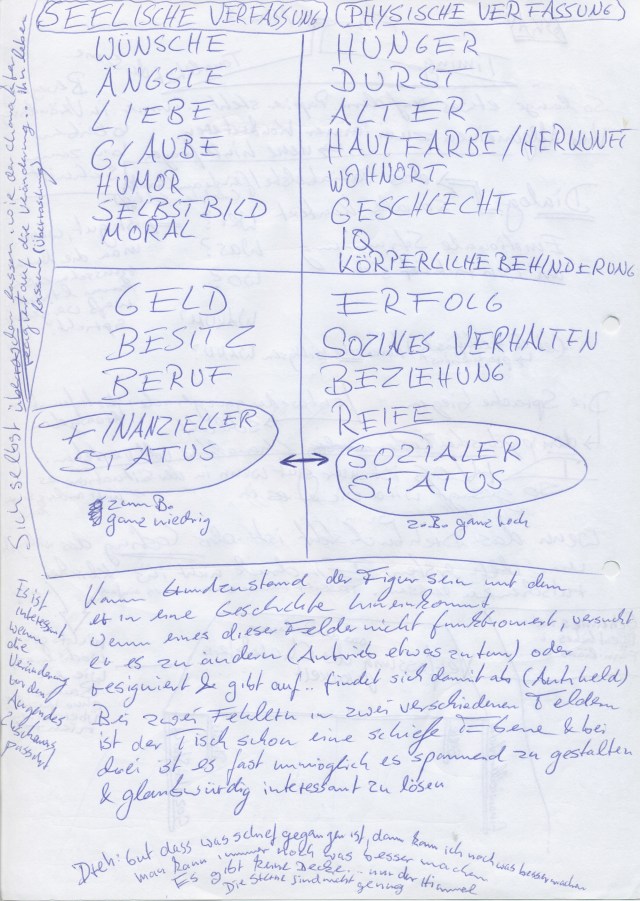 SEELISCHE VERFASSUNG
WÜNSCHE
ÄNGSTE
LIEBE
GLAUBE
HUMOR
SELBSTBILD
MORAL
PHYSISCHE VERFASSUNG
HUNGER
DURST
ALTER
HAUTFARBE/HERKUNFT
WOHNORT
GESCHLECHT
IQ
KÖRPERLICHE BEHINDERUNG
GELD
BESITZ
BERUF
FINANZIELLER
STATUS
zum B.
ganz niedrig
ERFOLG
SOZIALES VERHALTEN
BEZIEHUNG
REIFE
SOZIALER
STATUS
z.B. ganz hoch
Sich selbst überraschen lassen, wie der Charakter
reagiert auf die Veränderung.. Ihn leben
lassen (Überraschung)
Kann Grundzustand der Figur sein mit dem
er in eine Geschichte hineinkommt
wenn eines dieser Felder nicht funktioniert, versucht
er es zu ändern (Antrieb etwas zu tun) oder
resigniert & gibt auf.. findet sich damit ab (Antiheld)
Bei zwei Fehlern in zwei verschiedenen Feldern
ist der Tisch schon eine schiefe Ebene & bei
drei ist es fast unmöglich es spannend zu gestalten
& glaubwürdig interessant zu lösen
Es ist
interessant
wenn
die
Veränderung
vor den
Augen des
Zuschauers
passiert
Dreh: Gut dass was schief gegangen ist, dann kann ich noch was besser machen
man kann immer noch was besser machen
Es gibt keine Decke.. nur der Himmel
Die Sterne sind nicht genug